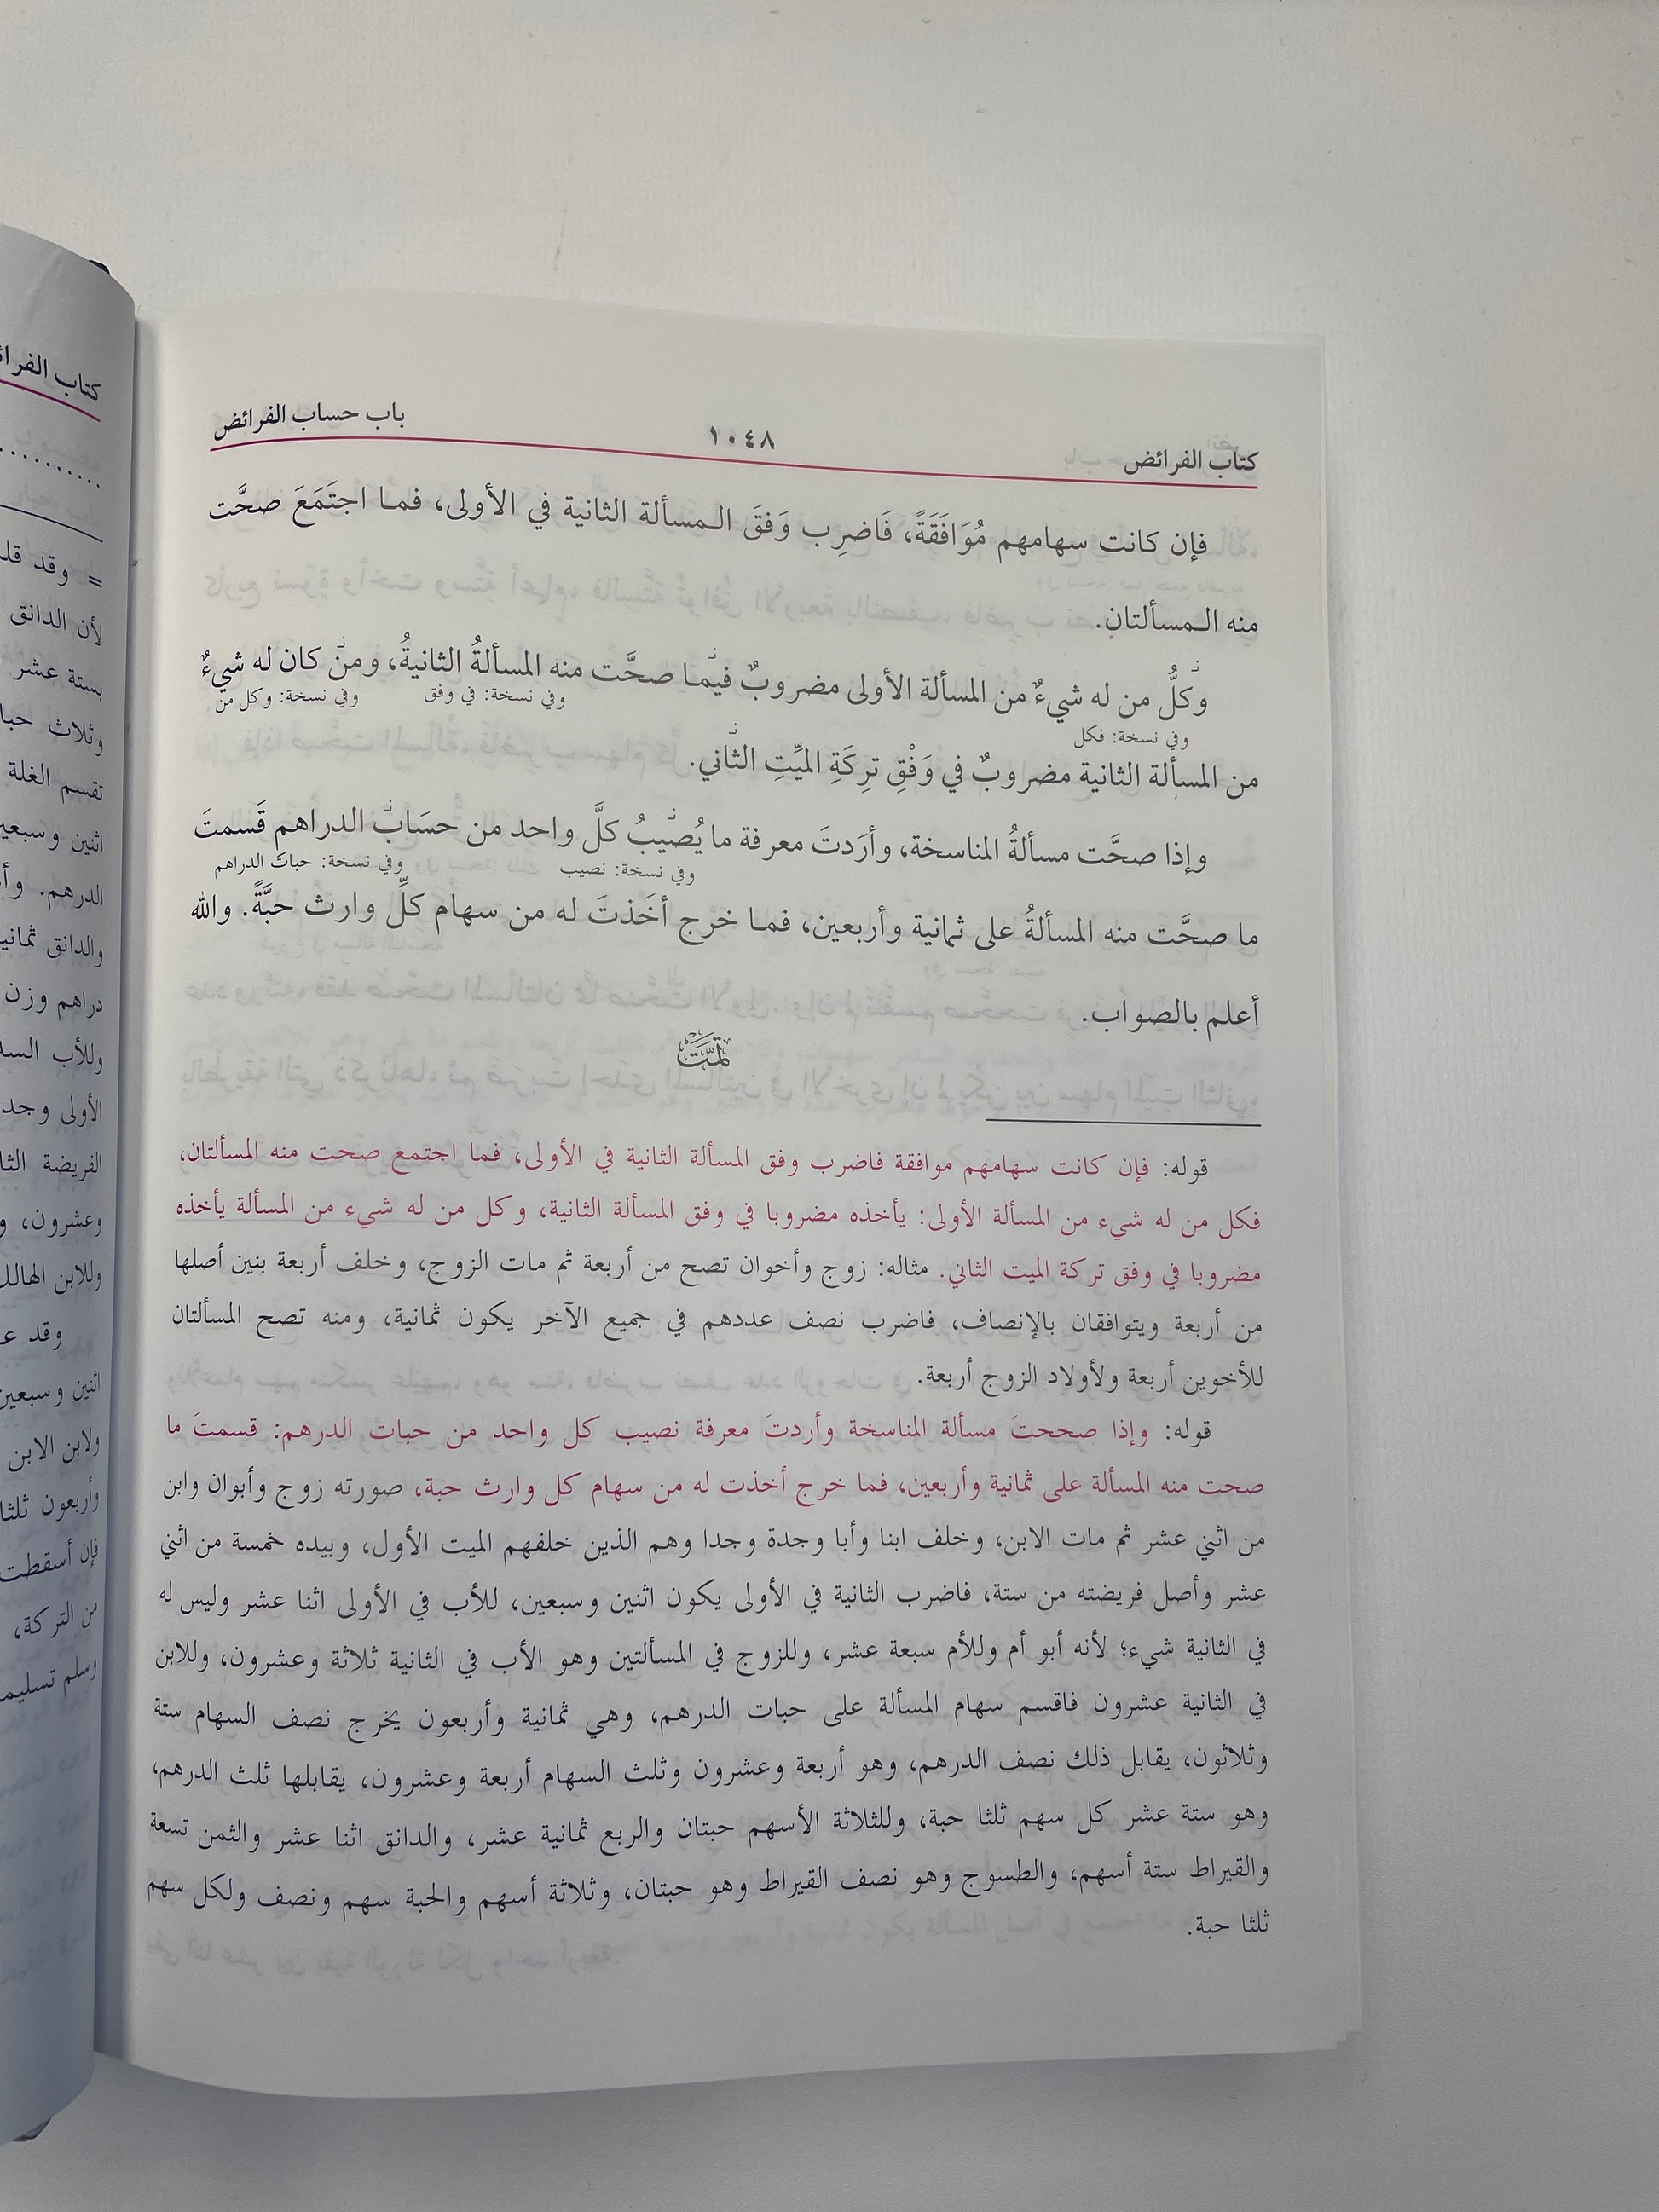 كتاب الفرائض
١٠٤٨
باب حساب الفرائض
فإن كانت سهامهم مُوَافَقَةً، فَاضرِب وَفقَ الـمسألة الثانية في الأولى، فمـا اجتَمَعَ صحَّت
منه الـمسألتان.
وكلُّ من له شيءٌ من المسألة الأولى مضروبٌ فيمـا صحَّت منه المسألةُ الثانيةُ، ومن كان له شيءٌ
وفي نسخة: فكل
وفي نسخة: في وفق
وفي نسخة: وكل من
من المسألة الثانية مضروبٌ في وَفْقِ تَرِكَةِ الميِّتِ الثاني.
وإذا صحَّت مسألةُ المناسخة، وأرَدتَ معرفة ما يُصيبُ كلَّ واحد من حسَاب الدراهم قَسمتَ
وفي نسخة: نصيب
وفي نسخة: حبات الدراهم
ما صحَّت منه المسألةُ على ثمانية وأربعين، فمـا خرج أخَذتَ له من سهام كلِّ وارث حبَّةً. والله
أعلم بالصواب.
تمَّت
قوله: فإن كانت سهامهم موافقة فاضرب وفق المسألة الثانية في الأولى، فما اجتمع صحت منه المسألتان،
فكل من له شيء من المسألة الأولى: يأخذه مضروبا في وفق المسألة الثانية، وكل من له شيء من المسألة يأخذه
مضروبا في وفق تركة الميت الثاني. مثاله: زوج وأخوان تصح من أربعة ثم مات الزوج، وخلف أربعة بنين أصلها
من أربعة ويتوافقان بالإنصاف، فاضرب نصف عددهم في جميع الآخر يكون ثمانية، ومنه تصح المسألتان
للأخوين أربعة ولأولاد الزوج أربعة.
قوله: وإذا صححتَ مسألة المناسخة وأردتَ معرفة نصيب كل واحد من حبات الدرهم: قسمتَ ما
صحت منه المسألة على ثمانية وأربعين، فما خرج أخذت له من سهام كل وارث حبة، صورته زوج وأبوان وابن
من اثني عشر ثم مات الابن، وخلف ابنا وأبا وجدة وجدا وهم الذين خلفهم الميت الأول، وبيده خمسة من اثني
عشر وأصل فريضته من ستة، فاضرب الثانية في الأولى يكون اثنين وسبعين، للأب في الأولى اثنا عشر وليس له
في الثانية شيء؛ لأنه أبو أم وللأم سبعة عشر، وللزوج في المسألتين وهو الأب في الثانية ثلاثة وعشرون، وللابن
في الثانية عشرون فاقسم سهام المسألة على حبات الدرهم، وهي ثمانية وأربعون يخرج نصف السهام ستة
وثلاثون، يقابل ذلك نصف الدرهم، وهو أربعة وعشرون وثلث السهام أربعة وعشرون، يقابلها ثلث الدرهم،
وهو ستة عشر كل سهم ثلثا حبة، وللثلاثة الأسهم حبتان والربع ثمانية عشر، والدانق اثنا عشر والثمن تسعة
والقيراط ستة أسهم، والطسوج وهو نصف القيراط وهو حبتان، وثلاثة أسهم والحبة سهم ونصف ولكل سهم
ثلثا حبة.